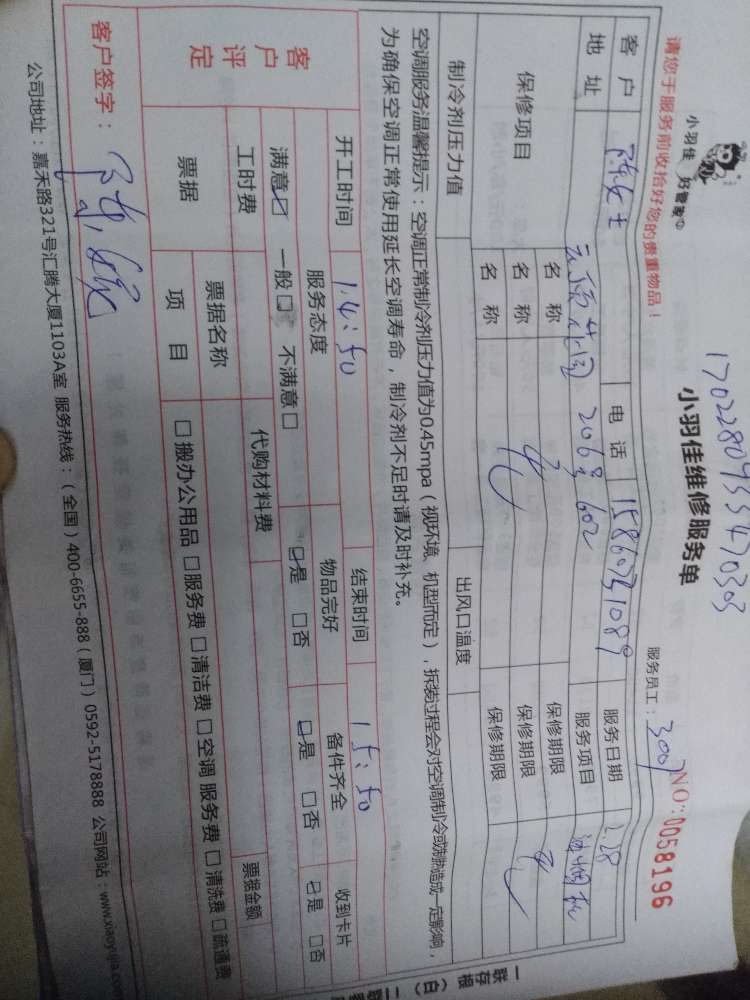 小羽佳 好管家
请您于服务前收拾好您的贵重物品！
1702280955470303
小羽佳维修服务单
服务员工：3007
NO：0058196
客户 陈女士 电话 15860741089 服务日期 2.28
地址 206号602 服务项目 油烟机
保修项目 名称 保修期限
名称 保修期限
名称 保修期限
制冷剂压力值 出风口温度
空调服务温馨提示：空调正常制冷剂压力值为0.45mpa（视环境、机型而定），拆装过程会对空调制冷或制热造成一定影响，
为确保空调正常使用延长空调寿命，制冷剂不足时请及时补充。
开工时间 14:50 结束时间 15:50
客户评定 服务态度 物品完好 备件齐全 收到卡片
满意☑ 一般□ 不满意□ ☑是 □否 ☑是 □否 ☑是 □否
工时费 代购材料费
票据 票据名称 票据金额
项目 □搬办公用品 □服务费 □清洁费 □空调服务费 □清洗费 □疏通费
客户签字：
公司地址：嘉禾路321号汇腾大厦1103A室 服务热线：（全国）400-6655-888（厦门）0592-5178888 公司网站：www.xiaoyujia.com
一联存根（白）二联